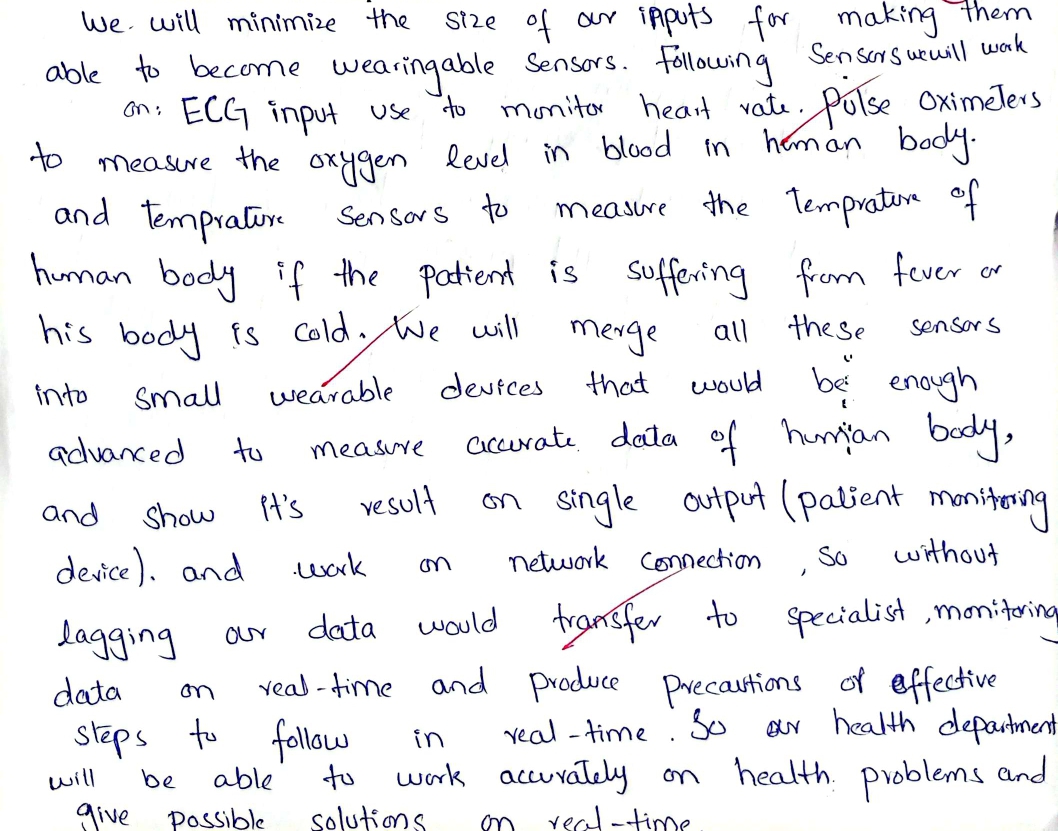 We will minimize the size of our inputs for making them
able to become wearingable sensors. Following Sensors we will work
on: ECG input use to monitor heart rate. Pulse Oximeters
to measure the oxygen level in blood in human body.
and Temprature Sensors to measure the Temprature of
human body if the patient is suffering from fever or
his body is cold. We will merge all these sensors
into small wearable devices that would be enough
advanced to measure accurate data of human body,
and show it's result on single output (patient monitoring
device). and work on network connection, so without
lagging our data would transfer to specialist, monitoring
data on real-time and produce precautions of effective
steps to follow in real-time. So our health department
will be able to work accurately on health problems and
give possible solutions on real-time.